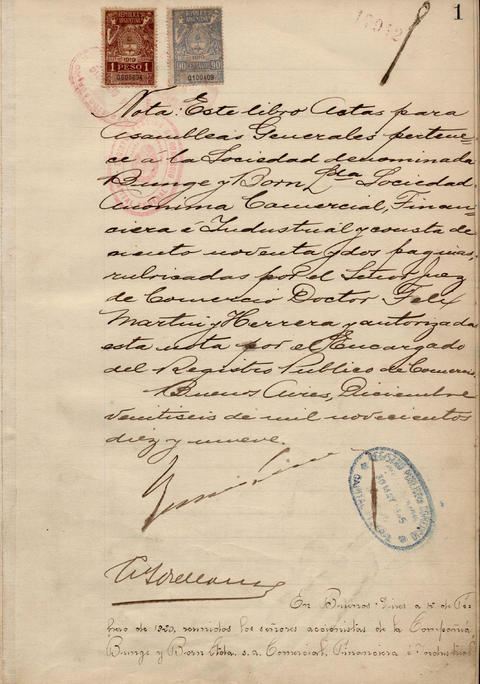 1
REPUBLICA ARGENTINA
1919
1 PESO 1
REPUBLICA ARGENTINA
1919
90 CENTAVOS 90
0100409
Nota: Este libro Actas para
Asambleas Generales pertene=
ce á la Sociedad denominada
Bunge y Born, Lda Sociedad
Anónima Comercial, Finan-
ciera é Industrial y consta de
ciento noventa y dos paginas,
rubricadas por el Señor Juez
de Comercio Doctor Felix
Martin y Herrera y autorizada
esta nota por el Encargado
del Registro Público de Comercio.
Buenos Aires, Diciembre
veintiseis de mil novecientos
diez y nueve.
En Buenos Aires a de Fe-
brero de 1920, reunidos los señores accionistas de la Compañía
Bunge y Born Ltda. s.a. Comercial, Financiera é Industrial